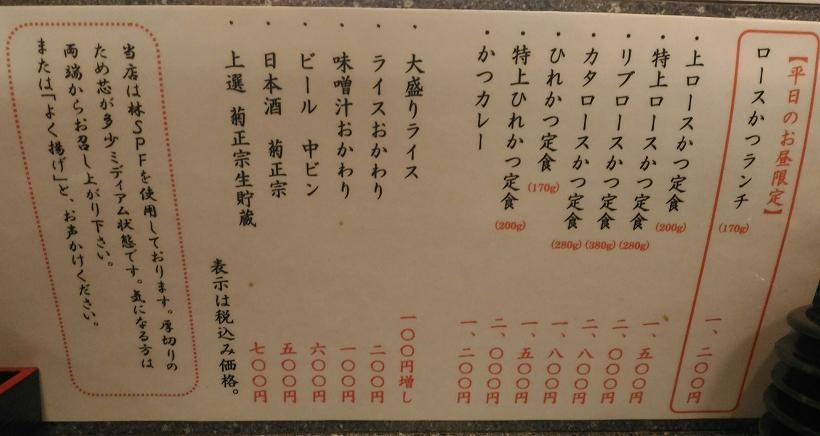 【平日のお昼限定】
ロースかつランチ (170g) 一、二〇〇円
・上ロースかつ定食 (200g) 一、五〇〇円
・特上ロースかつ定食 (280g) 二、〇〇〇円
・リブロースかつ定食 (380g) 二、八〇〇円
・カタロースかつ定食 (280g) 一、八〇〇円
・ひれかつ定食 (170g) 一、五〇〇円
・特上ひれかつ定食 (200g) 二、〇〇〇円
・かつカレー 一、二〇〇円
・大盛りライス 一〇〇円増し
・ライスおかわり 二〇〇円
・味噌汁おかわり 一〇〇円
・ビール 中ビン 六〇〇円
・日本酒 菊正宗 五〇〇円
・上選 菊正宗生貯蔵 七〇〇円
表示は税込み価格。
当店は林SPFを使用しております。厚切りの
ため芯が多少ミディアム状態です。気になる方は
両端からお召し上がり下さい。
または「よく揚げ」と、お声かけください。